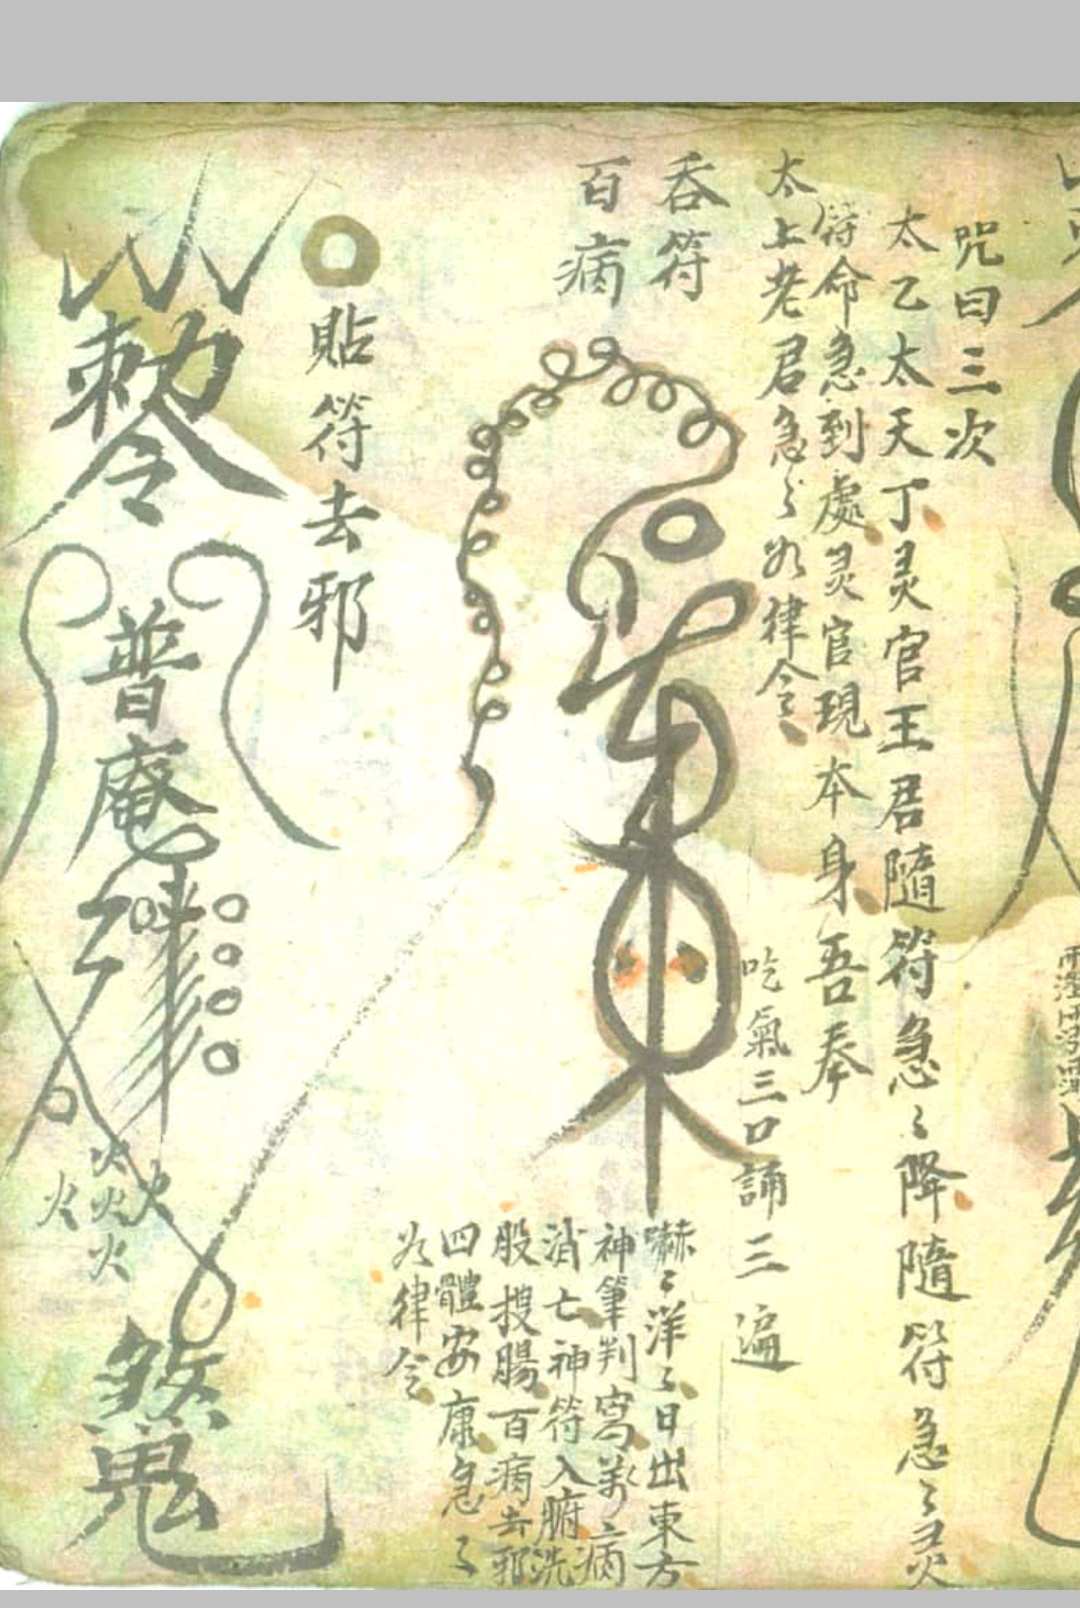 咒曰三次
太乙太天丁灵官王君隨符急〻降隨符急〻灵
符命急到處灵官現本身吾奉
太上老君急〻如律令
吞符
百病
吃氣三口誦三遍
嚇〻洋〻日出東方
神筆判寫萬病
消亡神符入腑洗
股搜腸百病去邪
四體安康急〻
如律令
貼符去邪
敕令
普庵
火火火火火
煞鬼